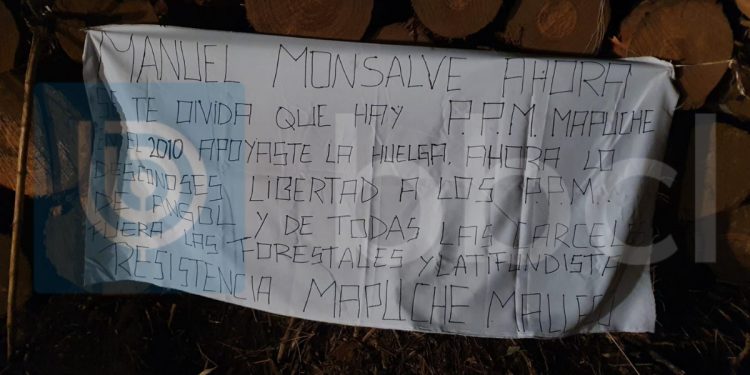 MANUEL MONSALVE AHORA
SE TE OLVIDA QUE HAY P.P.M. MAPUCHE
EL 2010 APOYASTE LA HUELGA. AHORA LO
DESCONOSES LIBERTAD A LOS P.P.M...
DE ANGOL Y DE TODAS LAS CARCELES
FUERA LAS FORESTALES Y LATIFUNDISTA
RESISTENCIA MAPUCHE MALLECO
bbcl